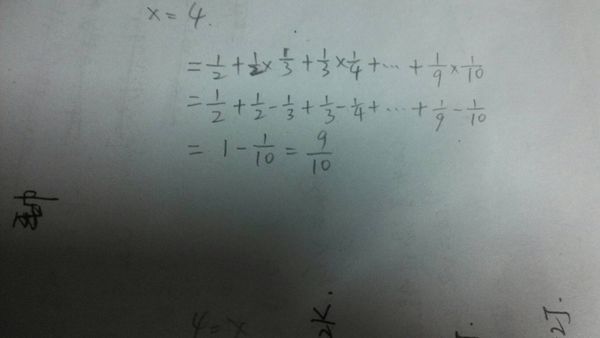 x = 4.
= 1/2 + 1/2 × 1/3 + 1/3 × 1/4 + ... + 1/9 × 1/10
= 1/2 + 1/2 - 1/3 + 1/3 - 1/4 + ... + 1/9 - 1/10
= 1 - 1/10 = 9/10
4 = x
2K.
2J.